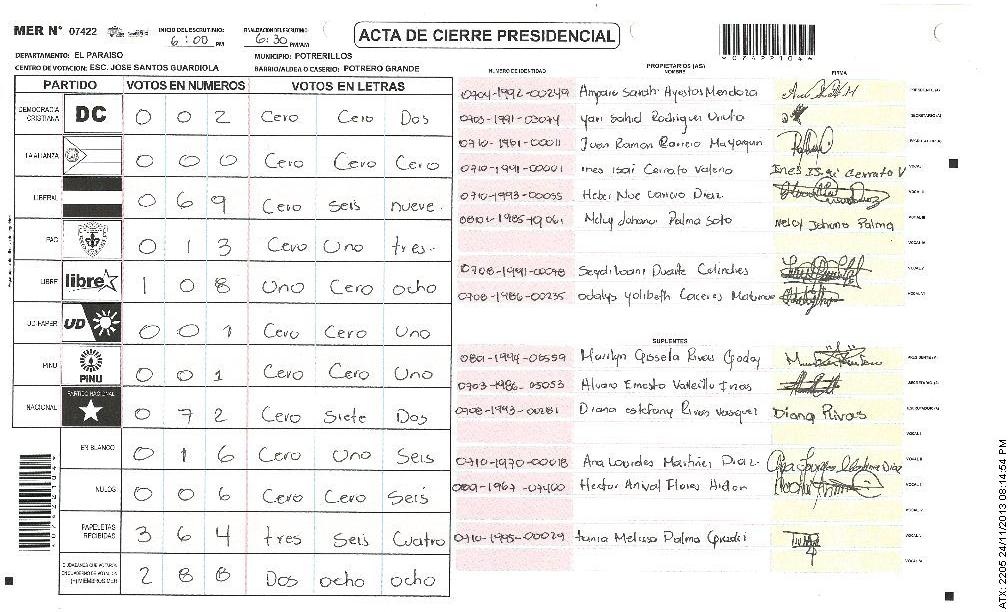 MER N° 07422 INICIO DEL ESCRUTINIO: 6:00 PM FINALIZACION DEL ESCRUTINIO: 6:30 PM/AM
ACTA DE CIERRE PRESIDENCIAL
DEPARTAMENTO: EL PARAISO MUNICIPIO: POTRERILLOS
CENTRO DE VOTACION: ESC. JOSE SANTOS GUARDIOLA BARRIO/ALDEA O CASERIO: POTRERO GRANDE
PARTIDO VOTOS EN NUMEROS VOTOS EN LETRAS
DEMOCRACIA CRISTIANA DC 0 0 2 Cero Cero Dos
LA ALIANZA 0 0 0 Cero Cero Cero
LIBERAL 0 6 9 Cero seis nueve.
PAC 0 1 3 Cero Uno tres.
LIBRE libre 1 0 8 Uno Cero ocho
UD-FAPER UD 0 0 1 Cero Cero Uno
PINU PINU 0 0 1 Cero Cero Uno
NACIONAL PARTIDO NACIONAL 0 7 2 Cero Siete Dos
EN BLANCO 0 1 6 Cero Uno Seis
NULOS 0 0 6 Cero Cero Seis
PAPELETAS RECIBIDAS 3 6 4 tres Seis Cuatro
CIUDADANOS QUE VOTARON EN CUADERNO DE VOTACION (+) MIEMBROS MER 2 8 8 Dos ocho ocho
NUMERO DE IDENTIDAD PROPIETARIOS (AS) NOMBRE FIRMA
0704-1992-00249 Amparo Sarahi Mendoza PRESIDENTE(A)
0703-1991-03074 Sahid Rodriguez SECRETARIO(A)
0710-1961-00011 Juan Ramon
0710-1991-00001 Ines Isai Cerrato Valerio Ines Isai Cerrato V
0710-1993-00055 Heber Noe Diaz
Nelcy Johana Palma Soto Nelcy Johana Palma
0708-1991-00098 Duarte
0708-1986-00235 Odalys Yolibeth Caceres
SUPLENTES
0801-1994-05559 Marilyn Gissela Rivas Godoy PRESIDENTE(A)
0703-1986-05053 Alvaro Ernesto Vallecillo SECRETARIO(A)
0708-1993-00281 Diana estefany Rivas Vasquez Diana Rivas ESCRUTADOR(A)
0710-1970-00018 Ana Lourdes Martinez Diaz
0801-1967-07400 Hector Anival Flores
0710-1995-00029 tania Melissa Palma
ATX: 2205 24/11/2013 08:14:54 PM